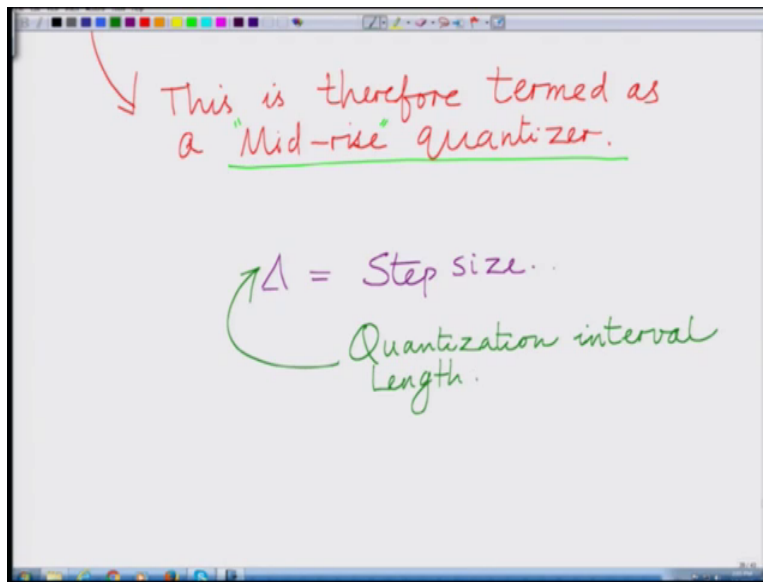 This is therefore termed as
a "Mid-rise" quantizer.
Δ = Step size..
Quantization interval
Length.